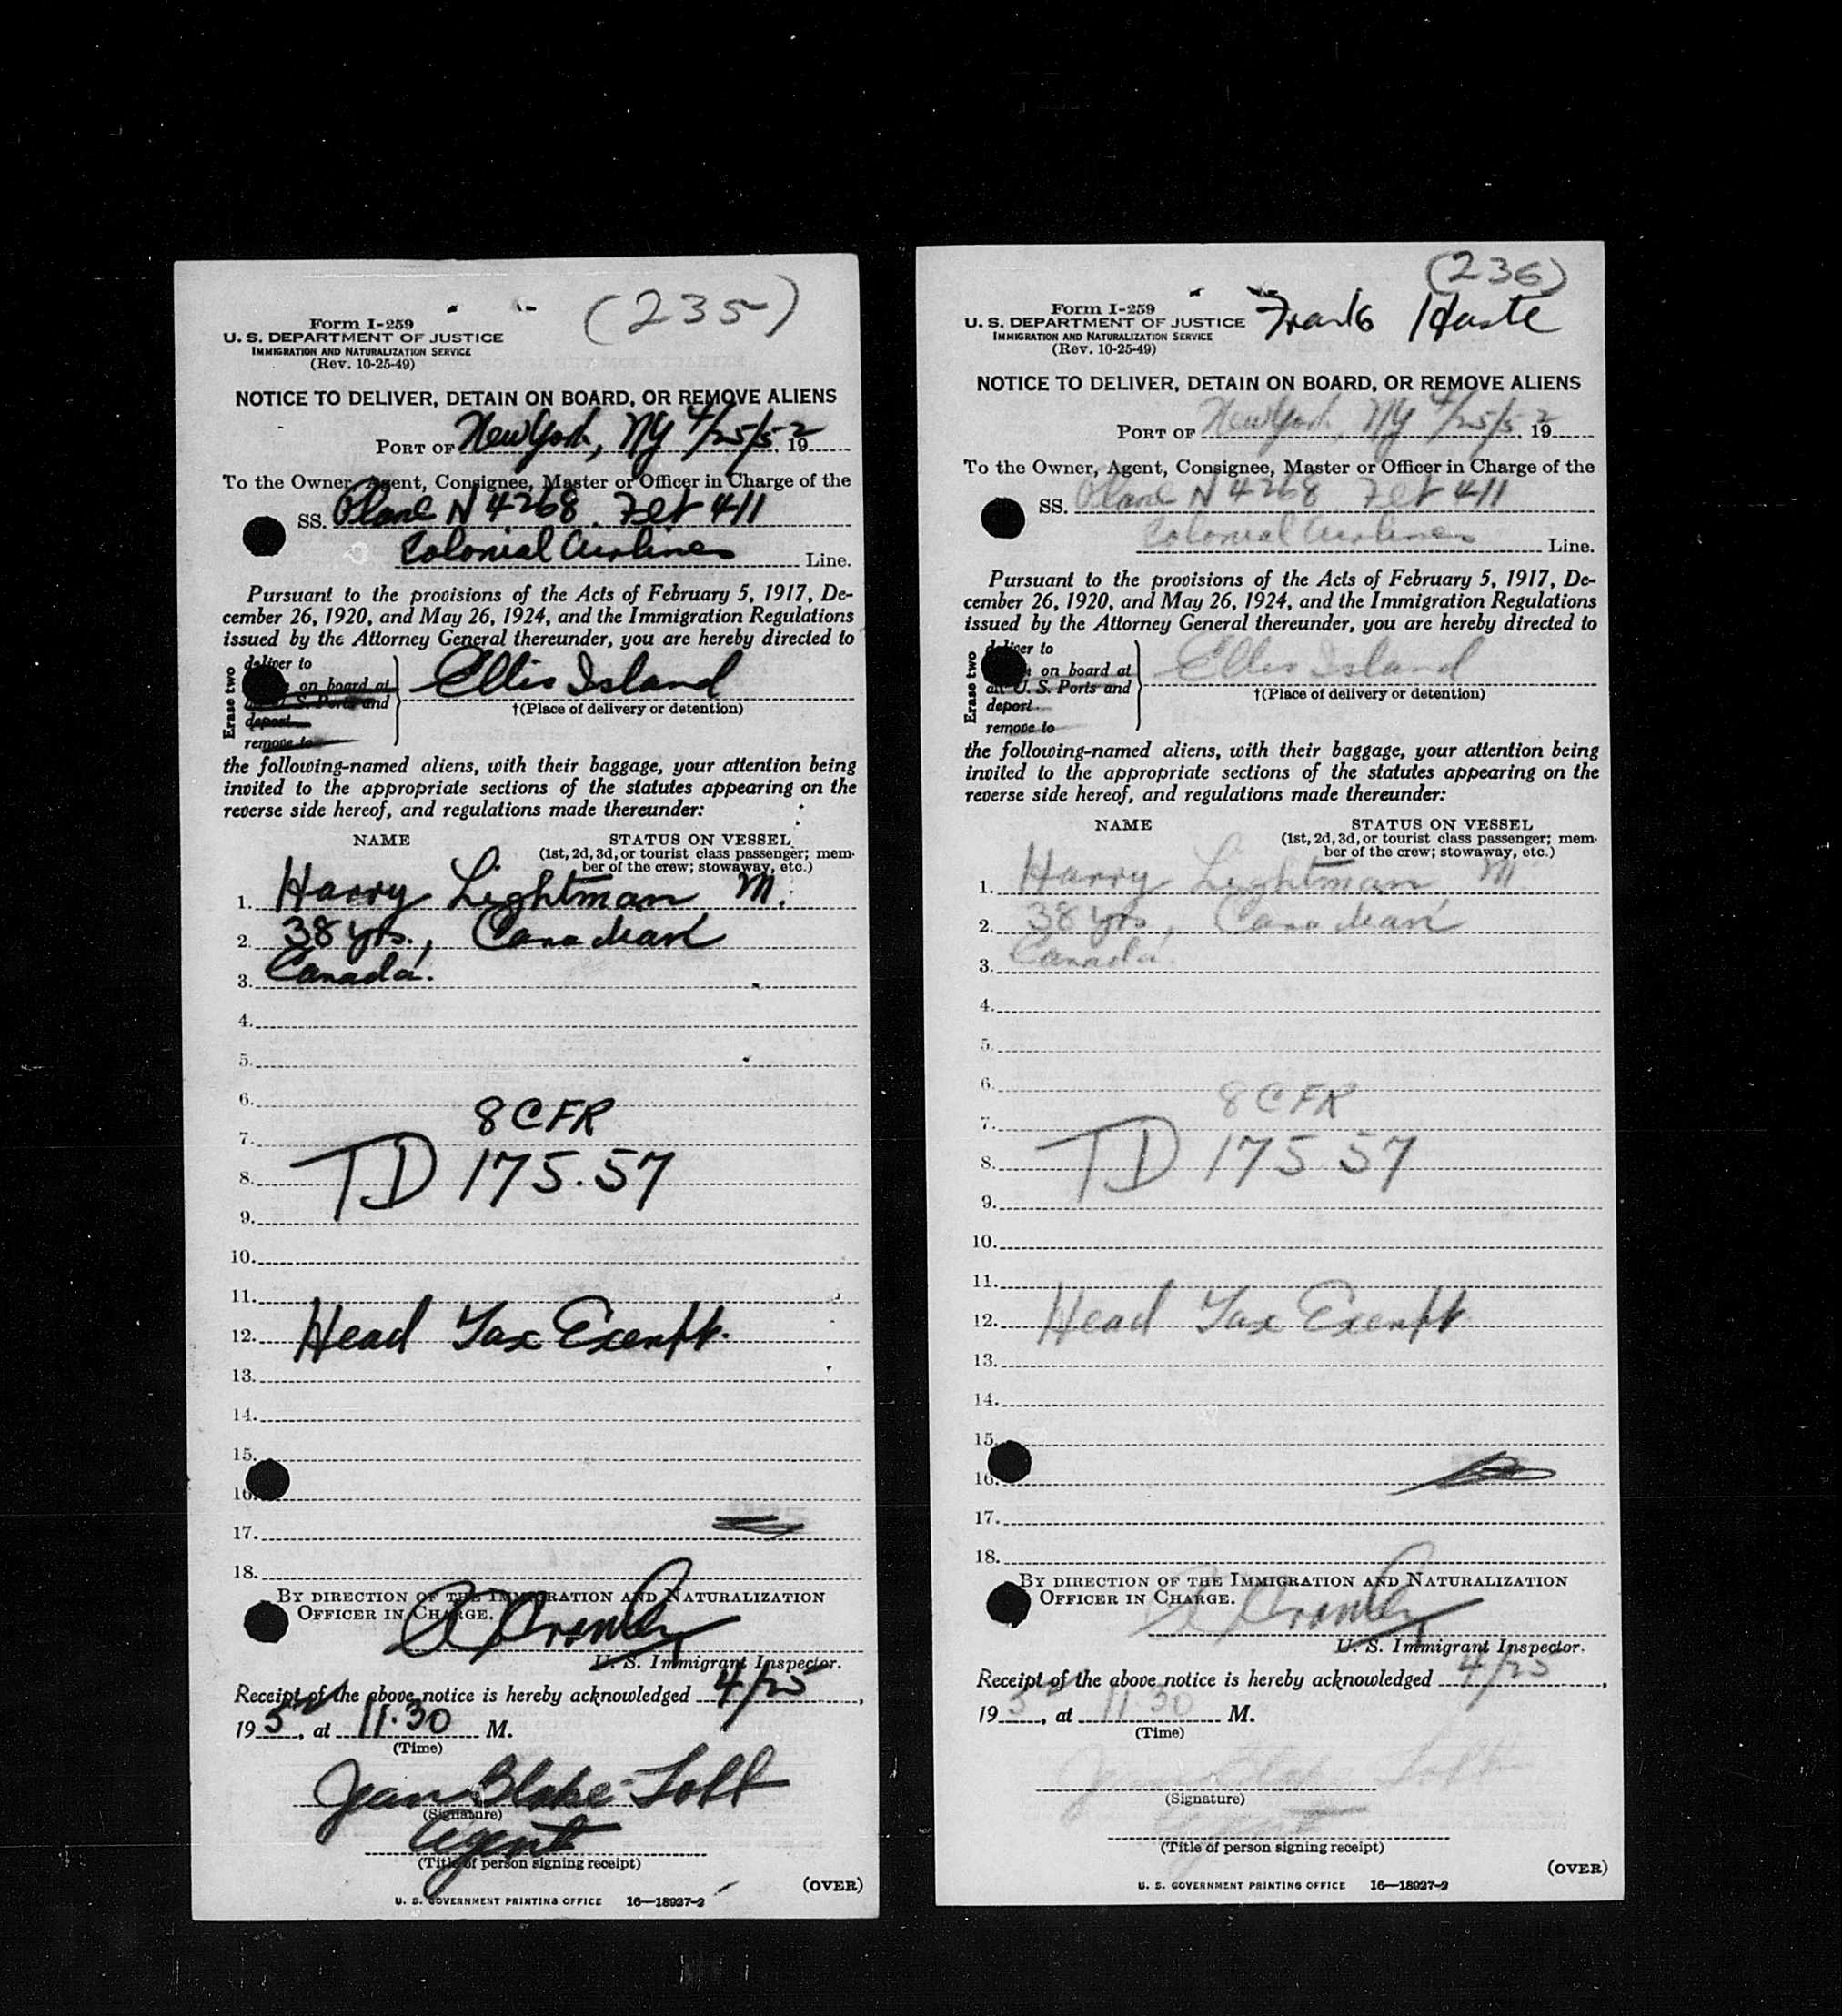 (235)
Form I-259
U. S. DEPARTMENT OF JUSTICE
IMMIGRATION AND NATURALIZATION SERVICE
(Rev. 10-25-49)
NOTICE TO DELIVER, DETAIN ON BOARD, OR REMOVE ALIENS
PORT OF New York, NY 4/25/52, 19
To the Owner, Agent, Consignee, Master or Officer in Charge of the
SS. Plane N 4268. Flt 411
Colonial Airlines Line.
Pursuant to the provisions of the Acts of February 5, 1917, De-
cember 26, 1920, and May 26, 1924, and the Immigration Regulations
issued by the Attorney General thereunder, you are hereby directed to
Erase two
deliver to
on board at
U. S. Ports and
deport
remove to
Ellis Island
†(Place of delivery or detention)
the following-named aliens, with their baggage, your attention being
invited to the appropriate sections of the statutes appearing on the
reverse side hereof, and regulations made thereunder:
NAME STATUS ON VESSEL
(1st, 2d, 3d, or tourist class passenger; mem-
ber of the crew; stowaway, etc.)
1. Harry Lightman M.
2. 38 yrs., Canadian
3. Canada.
4.
5.
6.
8 CFR
7.
8. TD 175.57
9.
10.
11.
12. Head Tax Exempt.
13.
14.
15.
16.
17.
18.
BY DIRECTION OF THE IMMIGRATION AND NATURALIZATION
OFFICER IN CHARGE.
U. S. Immigrant Inspector.
Receipt of the above notice is hereby acknowledged 4/25,
1952, at 11.30 M.
(Time)
Jean Blake
(Signature)
Agent
(Title of person signing receipt)
(OVER)
U. S. GOVERNMENT PRINTING OFFICE 16—18927-2
(236)
Form I-259
U. S. DEPARTMENT OF JUSTICE Frank Haste
IMMIGRATION AND NATURALIZATION SERVICE
(Rev. 10-25-49)
NOTICE TO DELIVER, DETAIN ON BOARD, OR REMOVE ALIENS
PORT OF New York, NY 4/25/52, 19
To the Owner, Agent, Consignee, Master or Officer in Charge of the
SS. Plane N 4268 Flt 411
Colonial Airlines Line.
Pursuant to the provisions of the Acts of February 5, 1917, De-
cember 26, 1920, and May 26, 1924, and the Immigration Regulations
issued by the Attorney General thereunder, you are hereby directed to
Erase two
deliver to
on board at
all U. S. Ports and
deport
remove to
Ellis Island
†(Place of delivery or detention)
the following-named aliens, with their baggage, your attention being
invited to the appropriate sections of the statutes appearing on the
reverse side hereof, and regulations made thereunder:
NAME STATUS ON VESSEL
(1st, 2d, 3d, or tourist class passenger; mem-
ber of the crew; stowaway, etc.)
1. Harry Lightman M.
2. 38 yrs., Canadian
3. Canada.
4.
5.
6.
8 CFR
7.
8. TD 175 57
9.
10.
11.
12. Head Tax Exempt.
13.
14.
15.
16.
17.
18.
BY DIRECTION OF THE IMMIGRATION AND NATURALIZATION
OFFICER IN CHARGE.
U. S. Immigrant Inspector.
Receipt of the above notice is hereby acknowledged 4/25,
1952, at 11 30 M.
(Time)
Jean Blake
(Signature)
Agent
(Title of person signing receipt)
(OVER)
U. S. GOVERNMENT PRINTING OFFICE 16—18927-2